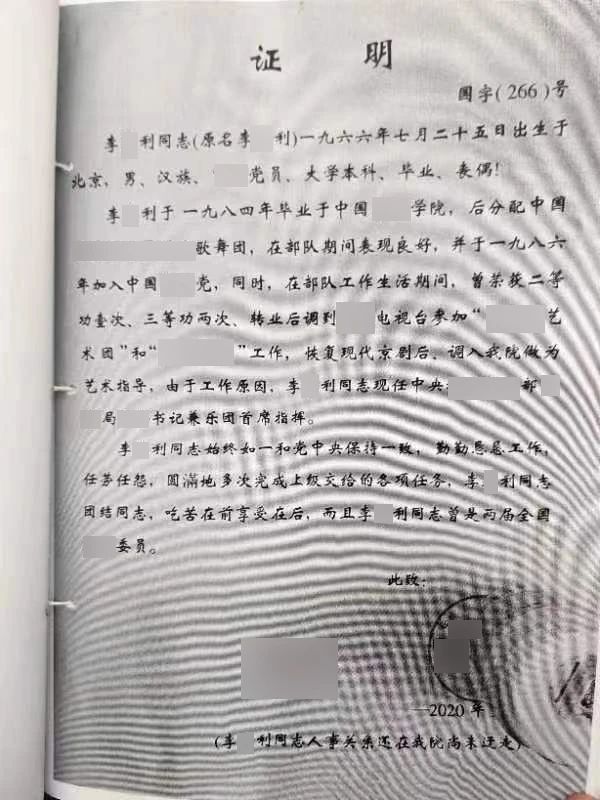 证 明
国字(266)号
李 利同志(原名李 利)一九六六年七月二十五日出生于
北京，男、汉族、 党员、大学本科、毕业、丧偶！
李 利于一九八四年毕业于中国 学院，后分配中国
歌舞团，在部队期间表现良好，并于一九八六
年加入中国 党，同时，在部队工作生活期间，曾荣获二等
功壹次、三等功两次、转业后调到 电视台参加“ 艺
术团”和“ ”工作，恢复现代京剧后、调入我院做为
艺术指导，由于工作原因，李 利同志现任中央 部
局 书记兼乐团首席指挥。
李 利同志始终如一和党中央保持一致，勤勤恳恳工作，
任劳任怨，圆滿地多次完成上级交给的各项任务，李 利同志
团结同志，吃苦在前享受在后，而且李 利同志曾是两届全国
委员。
此致：
2020年
(李 利同志人事关系还在我院尚未迁走)